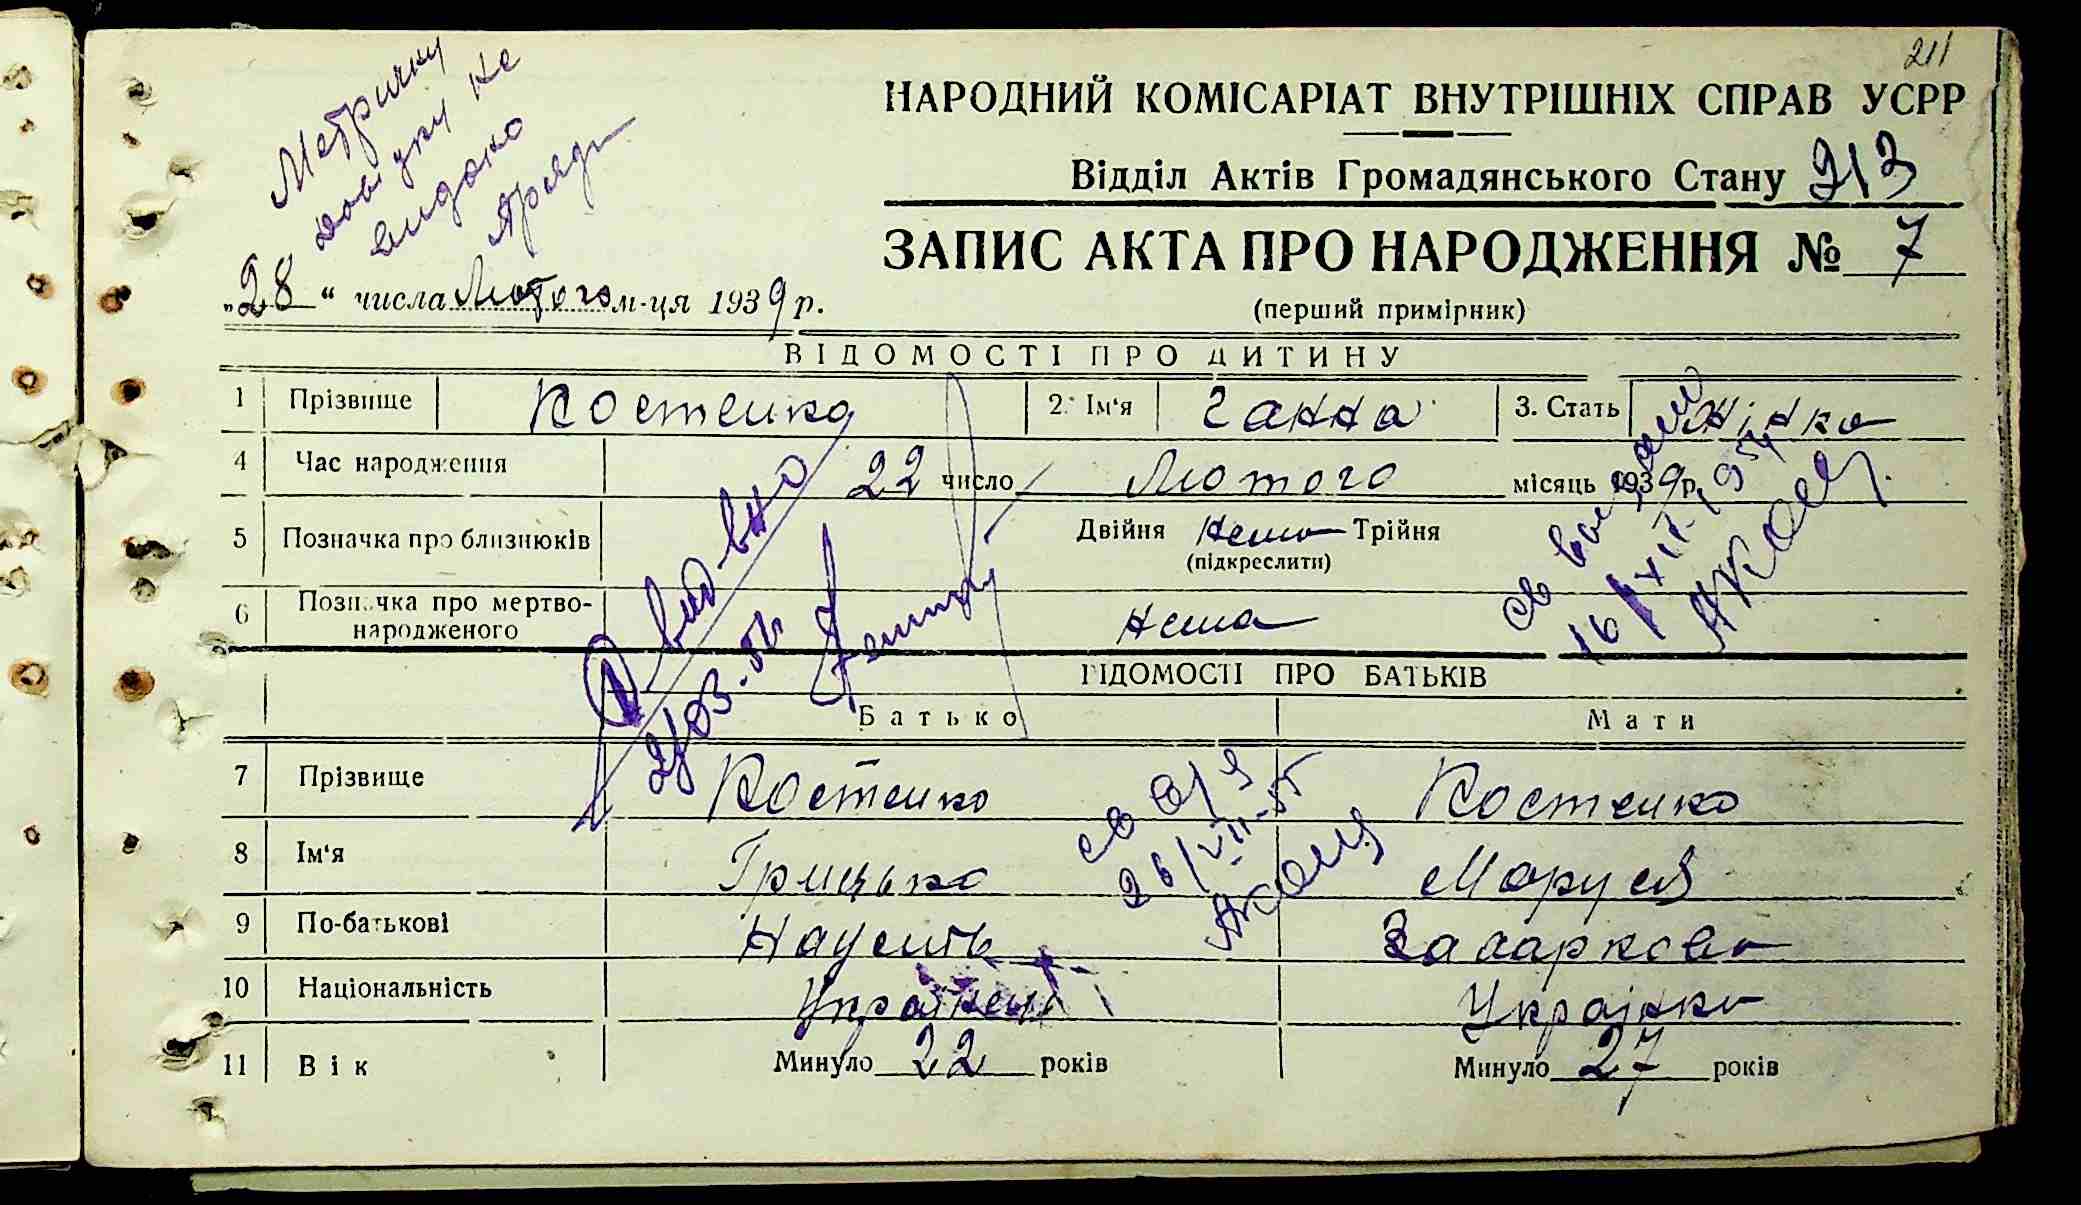 211
Метричну
довідку не
видано
НАРОДНИЙ КОМІСАРІАТ ВНУТРІШНІХ СПРАВ УСРР
Відділ Актів Громадянського Стану 213
ЗАПИС АКТА ПРО НАРОДЖЕННЯ № 7
(перший примірник)
„28“ числа Лютого м-ця 1939 р.
ВІДОМОСТІ ПРО ДИТИНУ
1 Прізвище Костенко 2. Ім'я Ганна 3. Стать Жінка
4 Час народження 22 число Лютого місяць 1939 р.
5 Позначка про близнюків Двійня Нема Трійня
(підкреслити)
6 Позначка про мертво-
народженого Нема
16/XII-1954
ВІДОМОСТІ ПРО БАТЬКІВ
Батько Мати
7 Прізвище Костенко Костенко
8 Ім'я Грицько Маруся
9 По-батькові Захаркова
26/VII-55
10 Національність Українець Українка
11 Вік Минуло 22 років Минуло 27 років